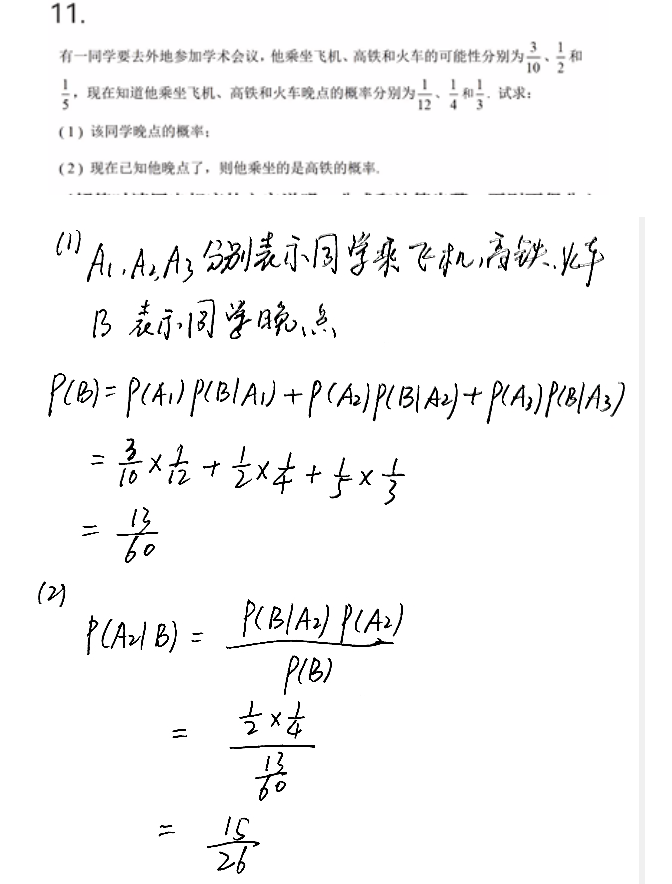 11.
有一同学要去外地参加学术会议,他乘坐飞机、高铁和火车的可能性分别为3/10、1/2和
1/5,现在知道他乘坐飞机、高铁和火车晚点的概率分别为1/12、1/4和1/3. 试求:
(1)该同学晚点的概率;
(2)现在已知他晚点了,则他乘坐的是高铁的概率.
(1) A₁,A₂,A₃分别表示同学乘飞机,高铁、火车
B 表示同学晚点
P(B)=P(A₁)P(B|A₁)+P(A₂)P(B|A₂)+P(A₃)P(B|A₃)
= 3/10 × 1/12 + 1/2 × 1/4 + 1/5 × 1/3
= 13/60
(2)
P(A₂|B) = P(B|A₂)P(A₂) / P(B)
= (1/2 × 1/4) / (13/60)
= 15/26